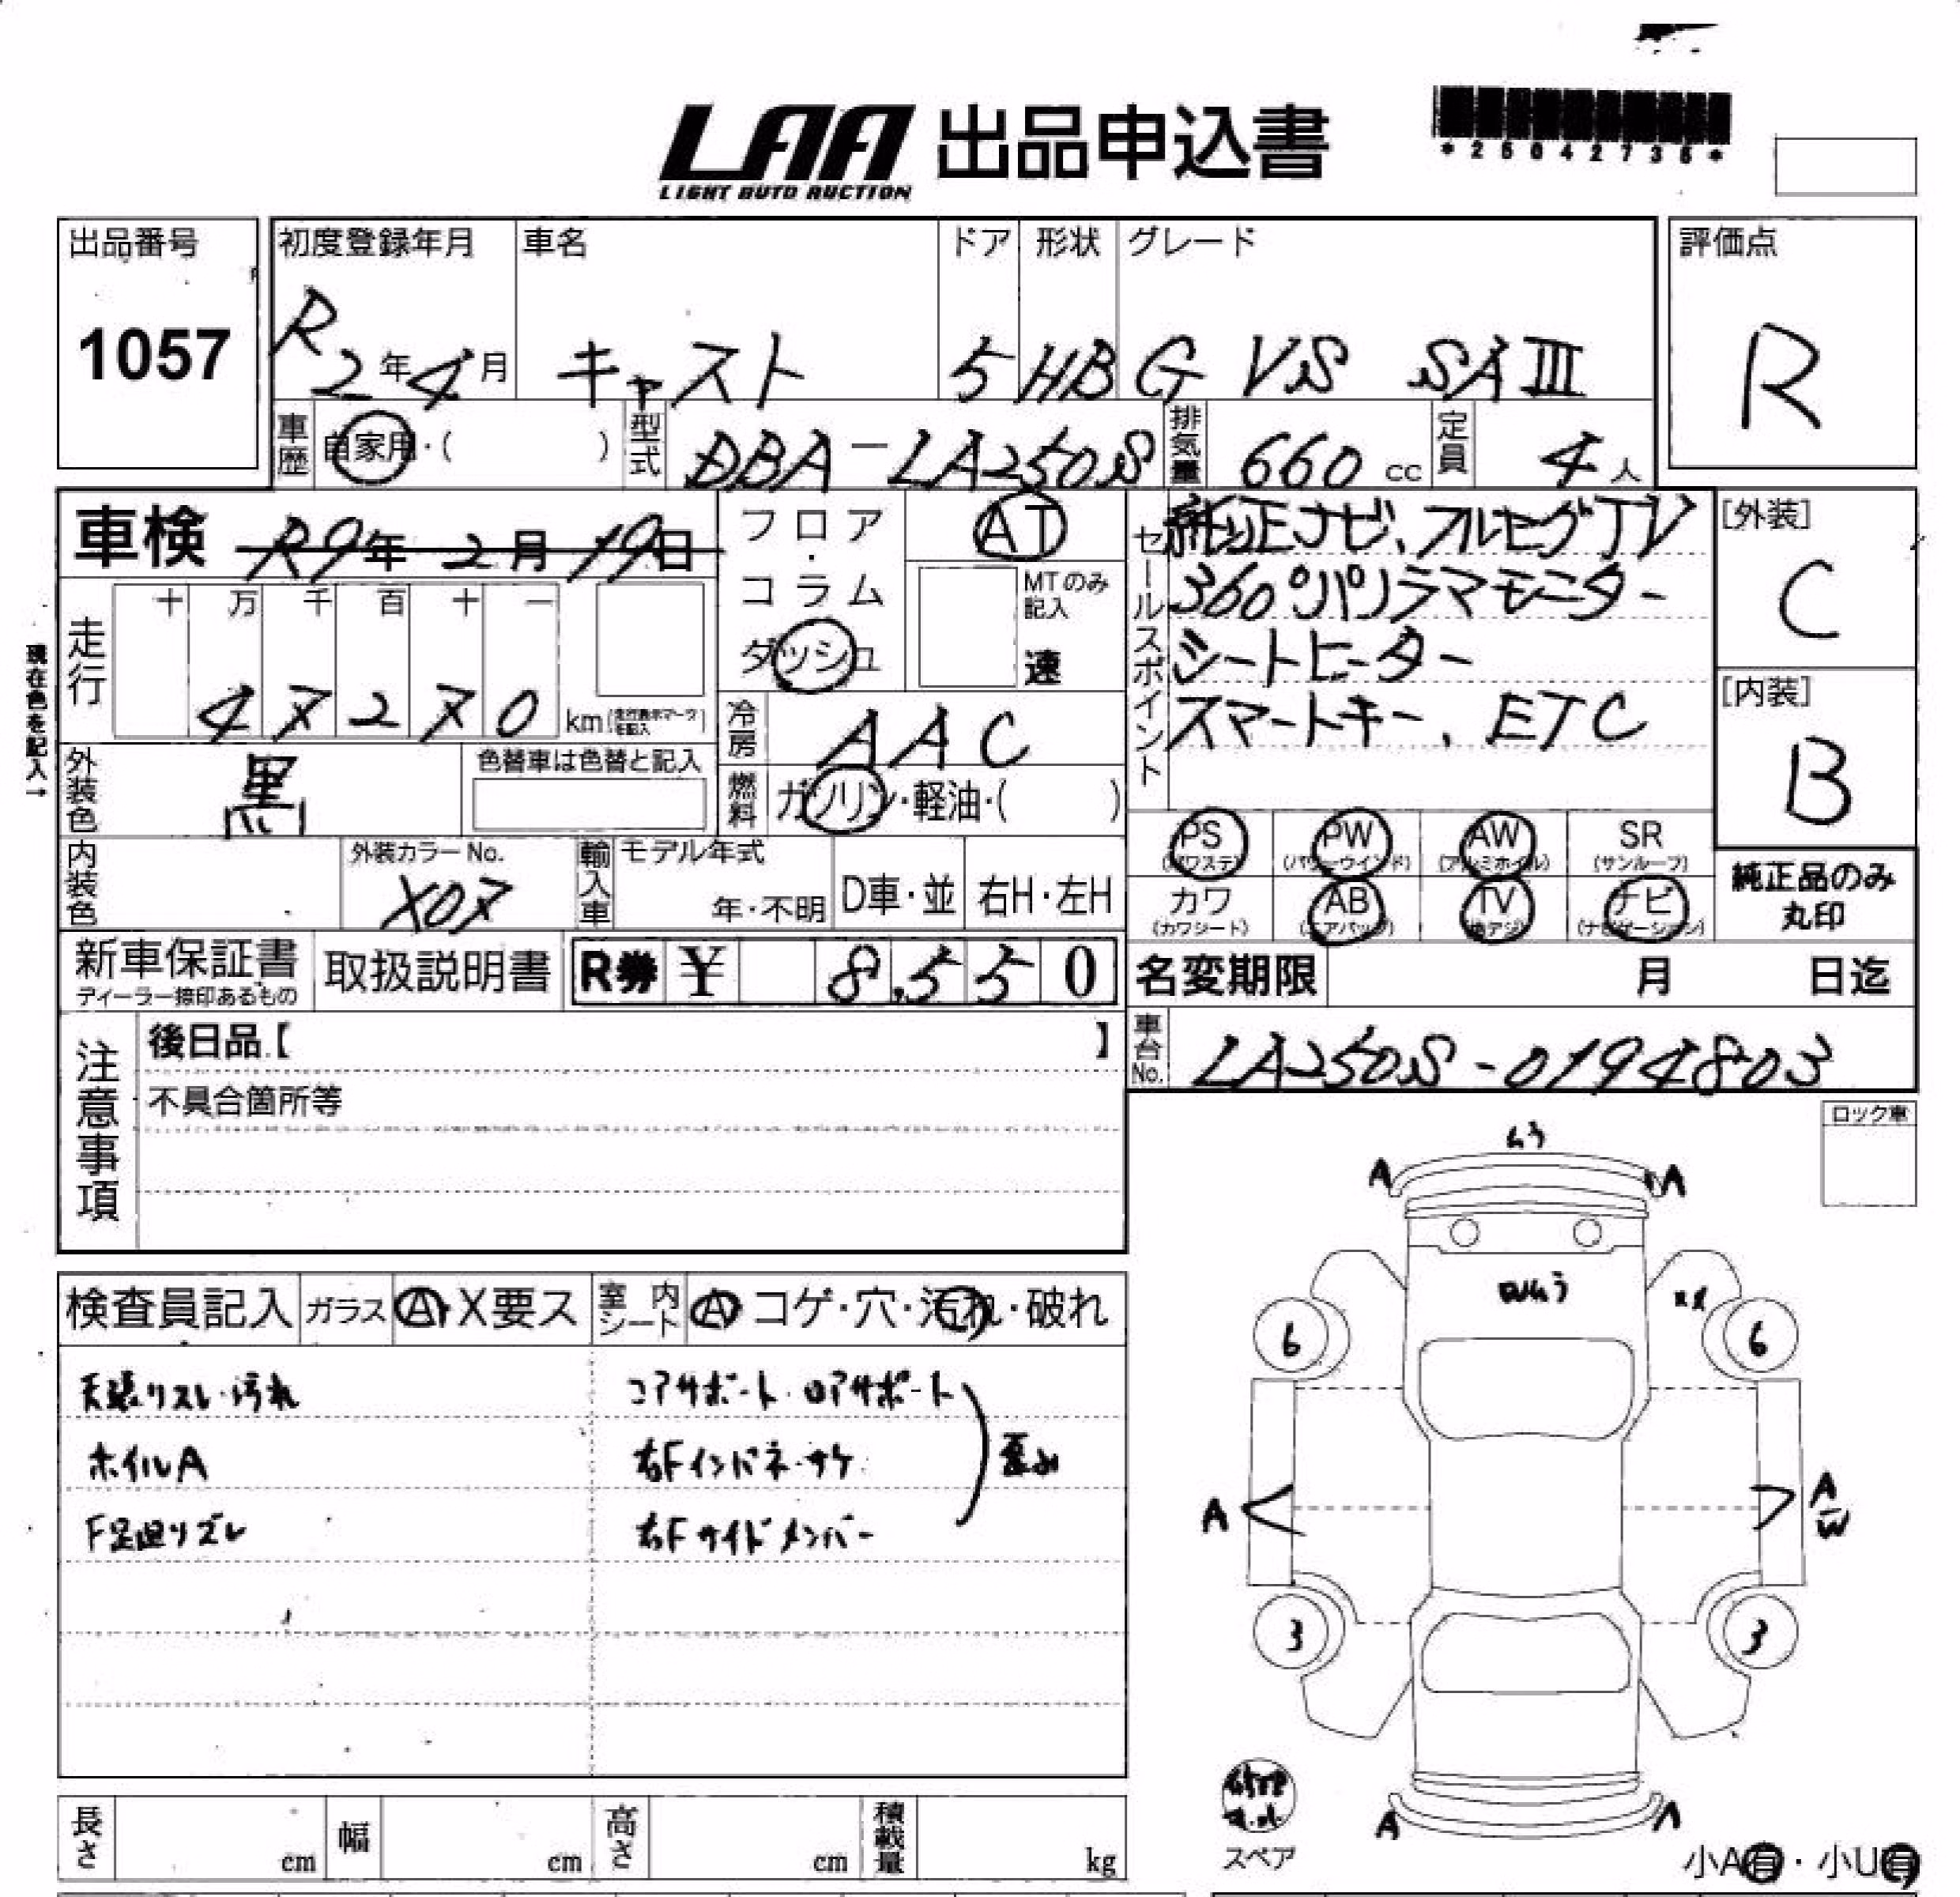 *25042735*
LAA 出品申込書
LIGHT AUTO AUCTION
出品番号 初度登録年月 車名 ドア 形状 グレード 評価点
1057 R2年4月 キャスト 5 HB G VS SAⅢ R
車歴 自家用・( ) 型式 DBA-LA250S 排気量 660 cc 定員 4人
車検 R9年2月19日 フロア・コラム ダッシュ AT
MTのみ記入 速
セールスポイント 純正ナビ、フルセグTV
360°パノラマモニター
シートヒーター
スマートキー、ETC
[外装] C
[内装] B
現在色を記入→
走行 十 万 千 百 十 一
47270 km(走行表示マークを記入)
冷房 AAC
外装色 黒 色替車は色替と記入 燃料 ガソリン・軽油・( )
PS PW AW SR
(パワステ) (パワーウインド) (アルミホイル) (サンルーフ)
カワ AB TV ナビ
(カワシート) (エアバッグ) (地デジ) (ナビゲーション)
純正品のみ丸印
内装色 外装カラーNo. X07 輸入車 モデル年式 年・不明 D車・並 右H・左H
新車保証書 取扱説明書 R券 ¥ 8,550 名変期限 月 日迄
ディーラー捺印あるもの
車台No. LA250S-0194803
注意事項 後日品【 】
不具合箇所等
ロック車
検査員記入 ガラス A・X要ス 室内シート A コゲ・穴・汚れ・破れ
天張リスレ・汚れ コアサポート・ロアサポート
ホイルA 右Fインパネ・サケ 歪み
F足廻リズレ 右Fサイドメンバー
ムラ
A A
6 6
A A
W
3 3
A A
スペア
小A有・小U有
長さ cm 幅 cm 高さ cm 積載量 kg